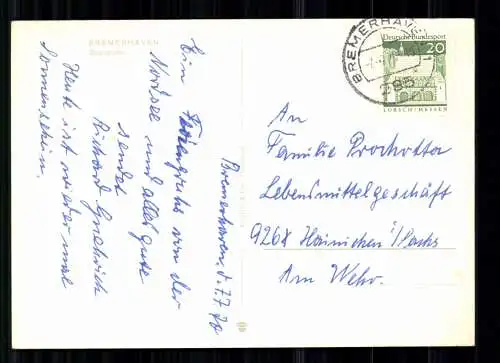 BREMERHAVEN
Bremerhaven, d. 7.7.70
Ein Feriengruß von der
Nordsee und alles gute
sendet
Richard
Heute ist wieder mal
Sonnenschein.
BREMERHAVEN
285
Deutsche Bundespost
20
LORSCH/HESSEN
An
Familie Prochotta
Lebensmittelgeschäft
9268 Hainichen/Sachs
Am Wehr.